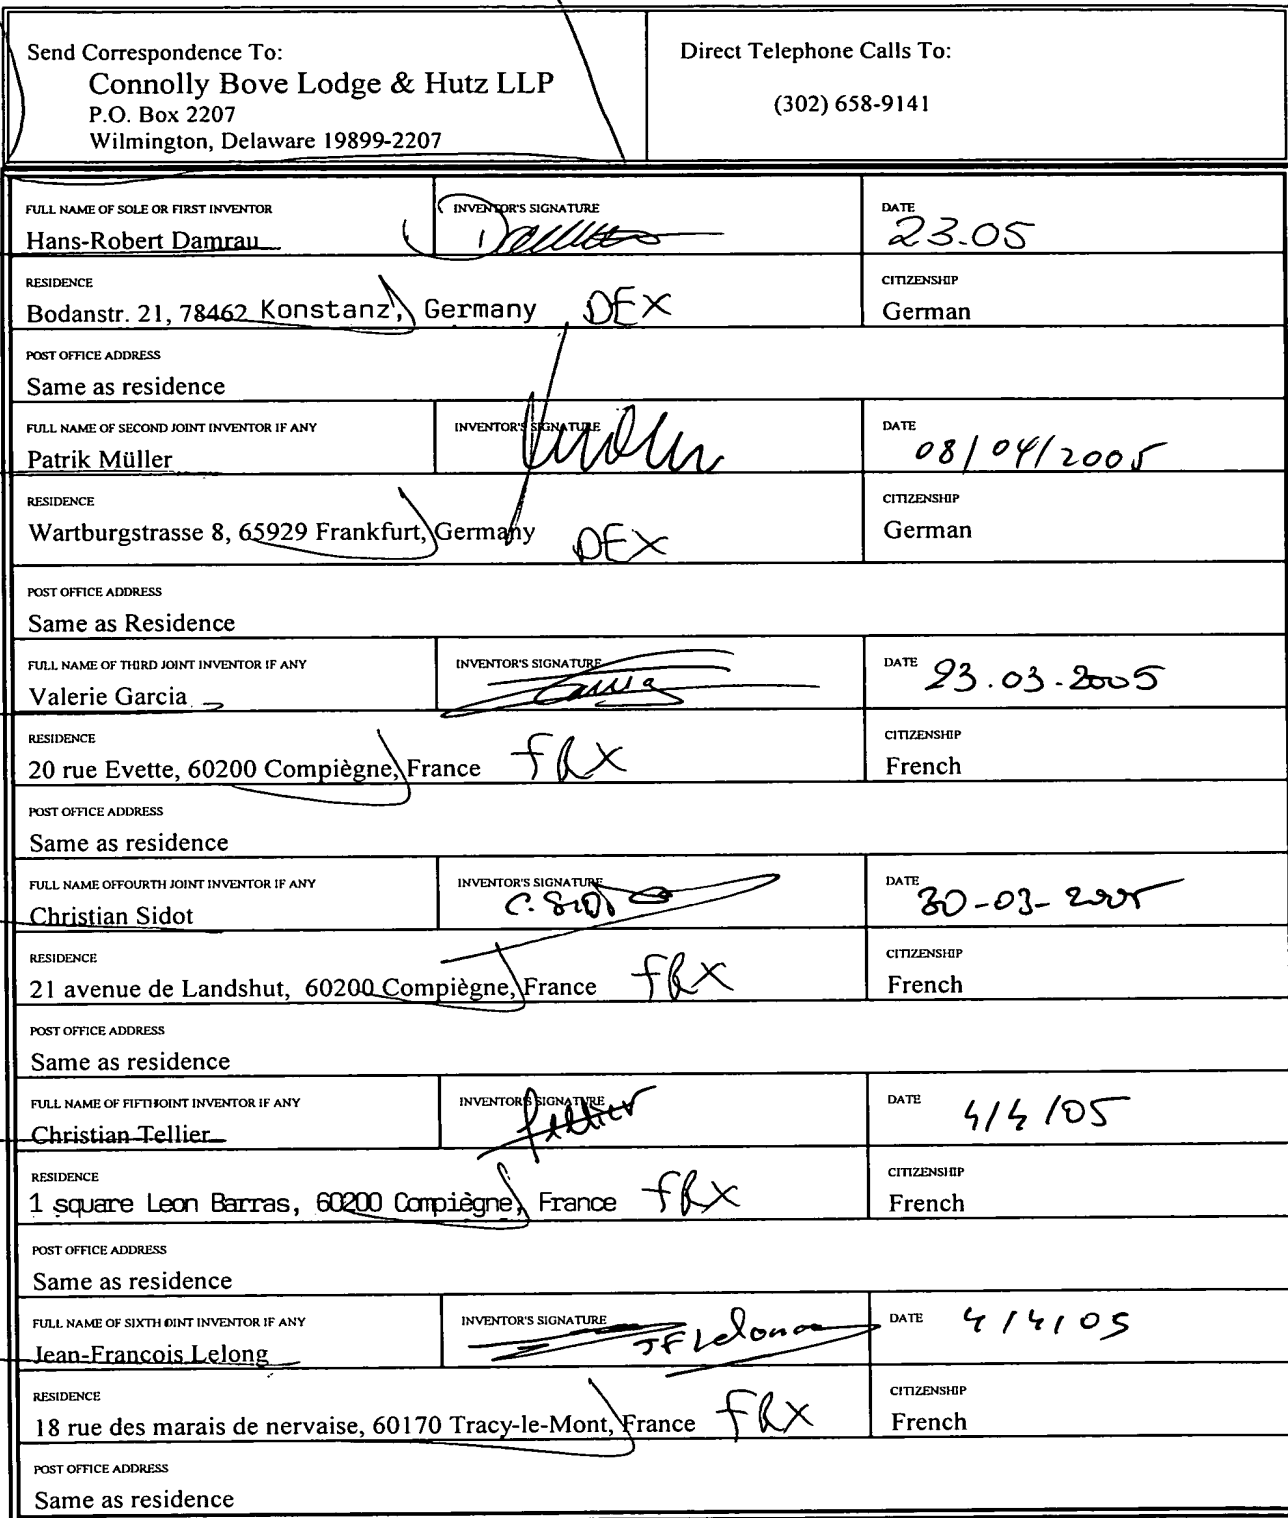 Send Correspondence To:
Connolly Bove Lodge & Hutz LLP
P.O. Box 2207
Wilmington, Delaware 19899-2207
Direct Telephone Calls To:
(302) 658-9141
FULL NAME OF SOLE OR FIRST INVENTOR
Hans-Robert Damrau
INVENTOR'S SIGNATURE
DATE
23.05
RESIDENCE
Bodanstr. 21, 78462 Konstanz, Germany DEX
CITIZENSHIP
German
POST OFFICE ADDRESS
Same as residence
FULL NAME OF SECOND JOINT INVENTOR IF ANY
Patrik Müller
INVENTOR'S SIGNATURE
DATE
08/04/2005
RESIDENCE
Wartburgstrasse 8, 65929 Frankfurt, Germany DEX
CITIZENSHIP
German
POST OFFICE ADDRESS
Same as Residence
FULL NAME OF THIRD JOINT INVENTOR IF ANY
Valerie Garcia
INVENTOR'S SIGNATURE
DATE 23.03.2005
RESIDENCE
20 rue Evette, 60200 Compiègne, France FRX
CITIZENSHIP
French
POST OFFICE ADDRESS
Same as residence
FULL NAME OFFOURTH JOINT INVENTOR IF ANY
Christian Sidot
INVENTOR'S SIGNATURE
C. Sidot
DATE
30-03-2005
RESIDENCE
21 avenue de Landshut, 60200 Compiègne, France FRX
CITIZENSHIP
French
POST OFFICE ADDRESS
Same as residence
FULL NAME OF FIFTH JOINT INVENTOR IF ANY
Christian Tellier
INVENTOR'S SIGNATURE
Tellier
DATE 4/4/05
RESIDENCE
1 square Leon Barras, 60200 Compiègne, France FRX
CITIZENSHIP
French
POST OFFICE ADDRESS
Same as residence
FULL NAME OF SIXTH OINT INVENTOR IF ANY
Jean-Francois Lelong
INVENTOR'S SIGNATURE
JF Lelong
DATE 4/4/05
RESIDENCE
18 rue des marais de nervaise, 60170 Tracy-le-Mont, France FRX
CITIZENSHIP
French
POST OFFICE ADDRESS
Same as residence